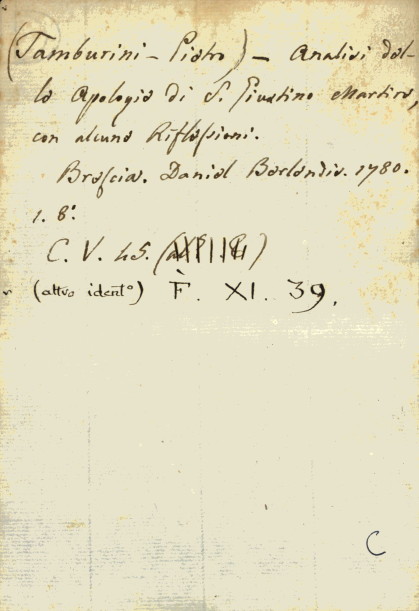 (Tamburini - Pietro) - Analisi del-
le Apologie di S. Giustino Martire,
con alcune Riflessioni.
Brescia. Daniel Berlendis. 1780.
1. 8.°
C. V. 45.
(altro ident.°) F. XI. 39.
C